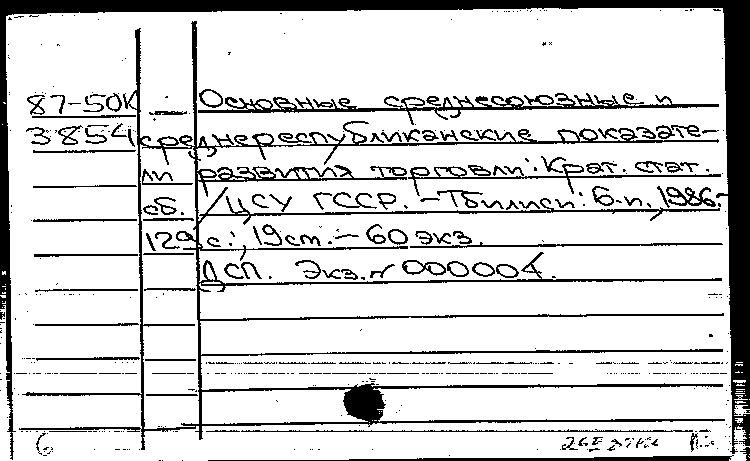 87-50К Основные среднесоюзные и
3854 среднереспубликанские показате-
ли развития торговли: Крат. стат.
сб. / ЦСУ ГССР. - Тбилиси: б.и., 1986.-
129 с.; 19 см. - 60 экз.
ДСП. Экз. N 000004.
6